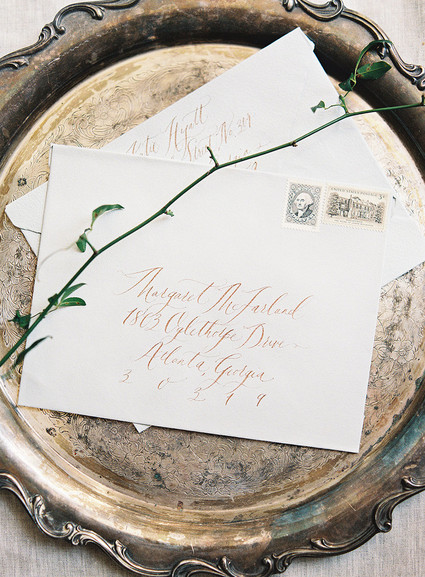 Katie Hyatt
Margaret McFarland
1863 Oglethorpe Drive
Atlanta, Georgia
30319